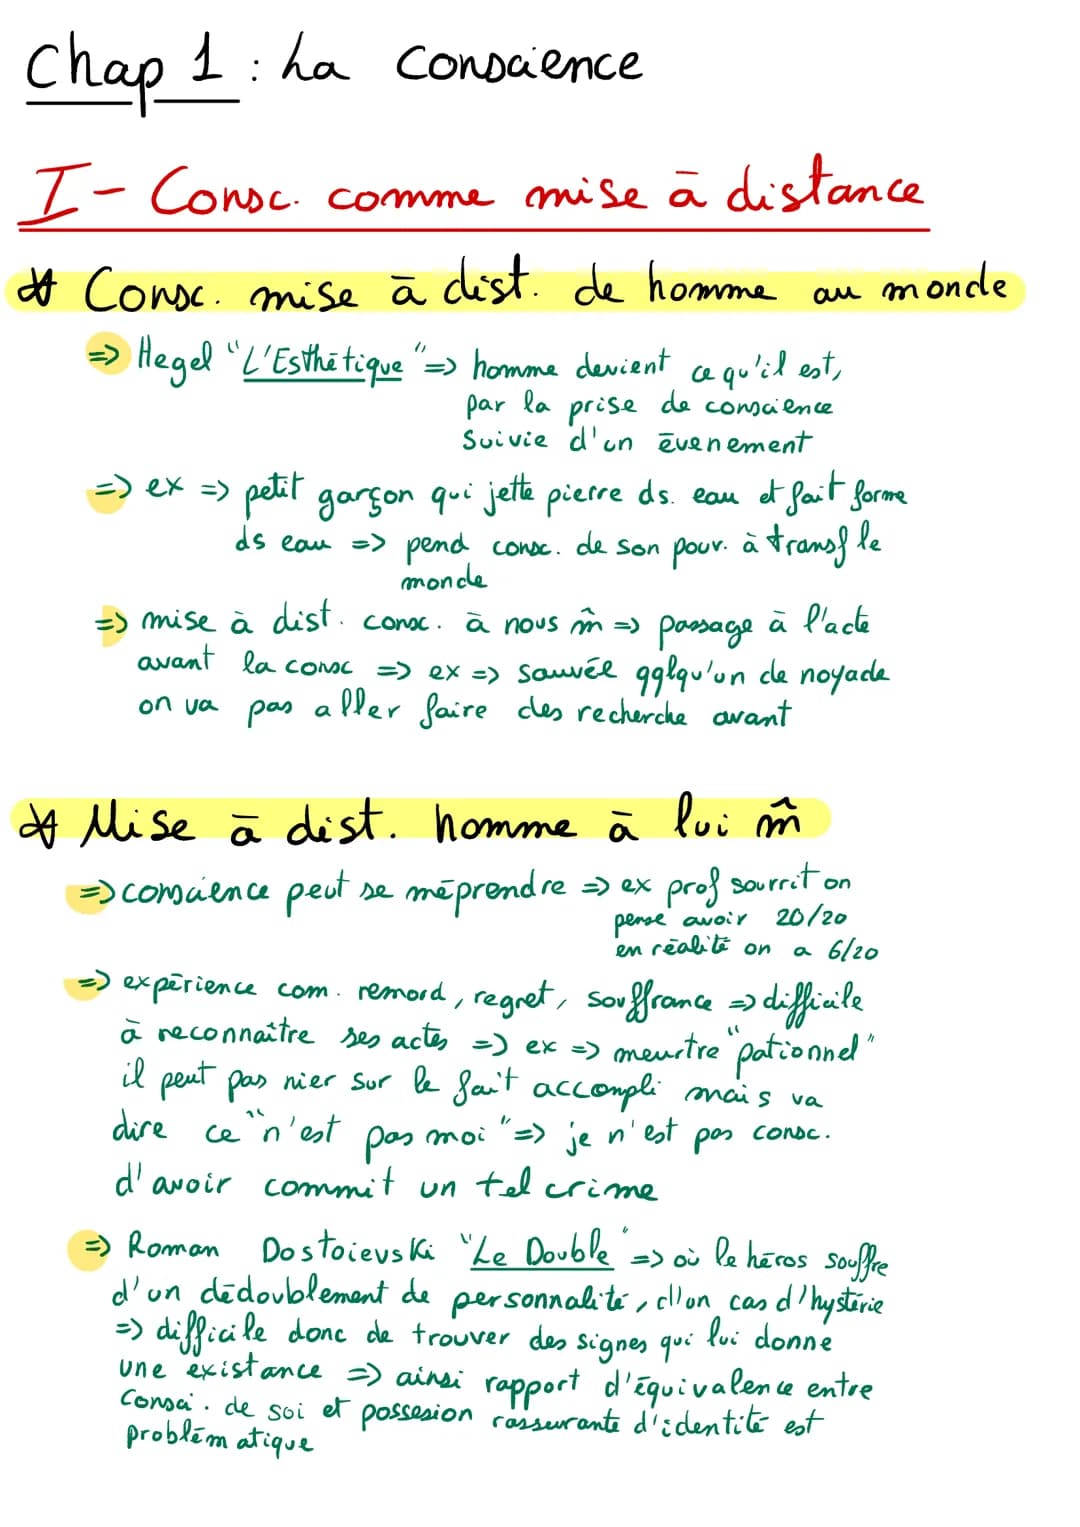 Chap 1 : La Conscience
I - Consc. comme mise à distance
Consc. mise à dist. de homme au monde
=> Hegel "L'Esthétique" => homme devient ce qu'il est,
par la prise de conscience
suivie d'un évenement
=> ex => petit garçon qui jette pierre ds. eau et fait forme
ds eau => pend consc. de son pouv. à transf le
monde
=> mise à dist. consc. à nous m̂ => passage à l'acte
avant la consc => ex => sauvél qqlqu'un de noyade
on va pas aller faire des recherche avant
Mise à dist. homme à lui m̂
=> conscience peut se méprendre => ex prof sourrit on
pense avoir 20/20
en réalité on a 6/20
=> expérience com. remord, regret, souffrance => difficile
à reconnaître ses actes => ex => meurtre "pationnel"
il peut pas nier sur le fait accompli mais va
dire ce "n'est pas moi" => je n'est pas consc.
d'avoir commit un tel crime
=> Roman Dostoievski "Le Double" => où le héros souffre
d'un dédoublement de personnalité, d'un cas d'hystérie
=> difficile donc de trouver des signes qui lui donne
une existance => ainsi rapport d'équivalence entre
Consci. de soi et possesion rassurante d'identité est
problématique